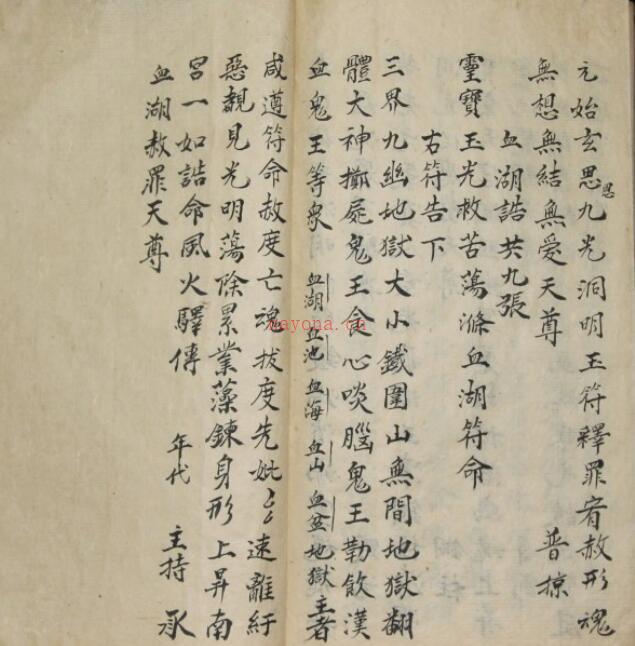 元始玄思恩九光洞明玉符釋罪宥赦形魂
無想無結無愛天尊 普掠
血湖誥共九張
靈寶玉光救苦蕩滌血湖符命
右符告下
三界九幽地獄大小鐵圍山無間地獄翻
體大神擲屍鬼王食心啖腦鬼王勒飲漢
血鬼王等眾 血湖 血池 血海 血山 血盆地獄主者
咸遵符命赦度亡魂拔度先妣 速離紆
惡親見光明蕩除累業藻鍊身形上昇南
宮一如誥命風火驛傳 年代 主持 承
血湖赦罪天尊
nayona.cn